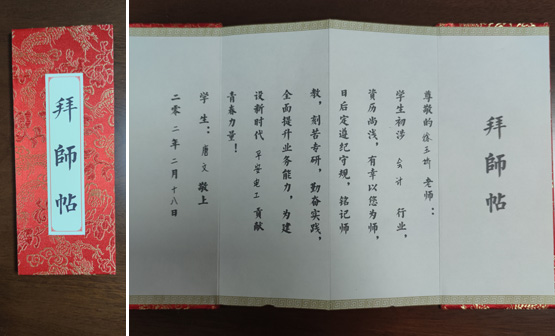 拜師帖
拜師帖
尊敬的 徐玉珩 老师：
学生初涉 会计 行业，
资历尚浅，有幸以您为师，
日后定遵纪守规，铭记师
教，刻苦专研，勤奋实践，
全面提升业务能力，为建
设新时代 平安建工 贡献
青春力量！
学生：唐文 敬上
二零二二年二月十八日